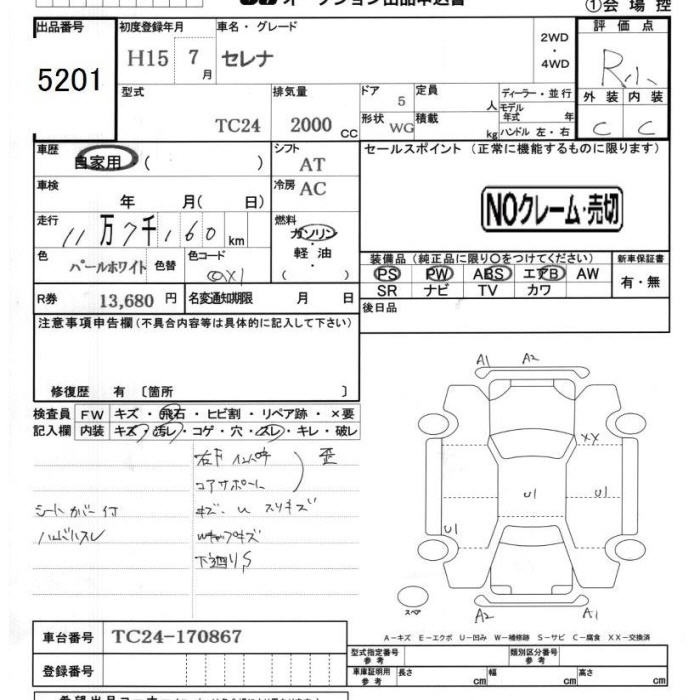 オークション出品申込書
①会場控
出品番号
5201
初度登録年月
H15 7月
車名・グレード
セレナ
2WD
・
4WD
評価点
R小
外装 内装
C C
型式
TC24
排気量
2000 cc
ドア
5
形状 WG
定員
人
積載
kg
ディーラー・並行
モデル年式 年
ハンドル 左・右
車歴
自家用 ( )
シフト
AT
車検
年 月( 日)
冷房 AC
走行
11万7千160 km
燃料
ガソリン
・
軽油
( )
色
パールホワイト
色替
色コード
QX1
R券 13,680 円
名変通知期限 月 日
セールスポイント (正常に機能するものに限ります)
NOクレーム・売切
装備品 (純正品に限り○をつけてください)
PS PW ABS エアB AW
SR ナビ TV カワ
新車保証書
有・無
後日品
注意事項申告欄 (不具合内容等は具体的に記入して下さい)
修復歴 有 〔箇所 〕
検査員
記入欄
FW キズ・飛石・ヒビ割・リペア跡・×要
内装 キズ・汚レ・コゲ・穴・スレ・キレ・破レ
コアサポート
歪
シートカバー付
キズ・U スリキズ
ハンドルスレ
下廻りS
A1 A2
XX
U1 U1
U1
スペア
A2 A1
A-キズ E-エクボ U-凹み W-補修跡 S-サビ C-腐食 XX-交換済
車台番号 TC24-170867
登録番号
型式指定番号
参考
類別区分番号
参考
車庫証明用
参考
長さ cm
幅 cm
高さ cm